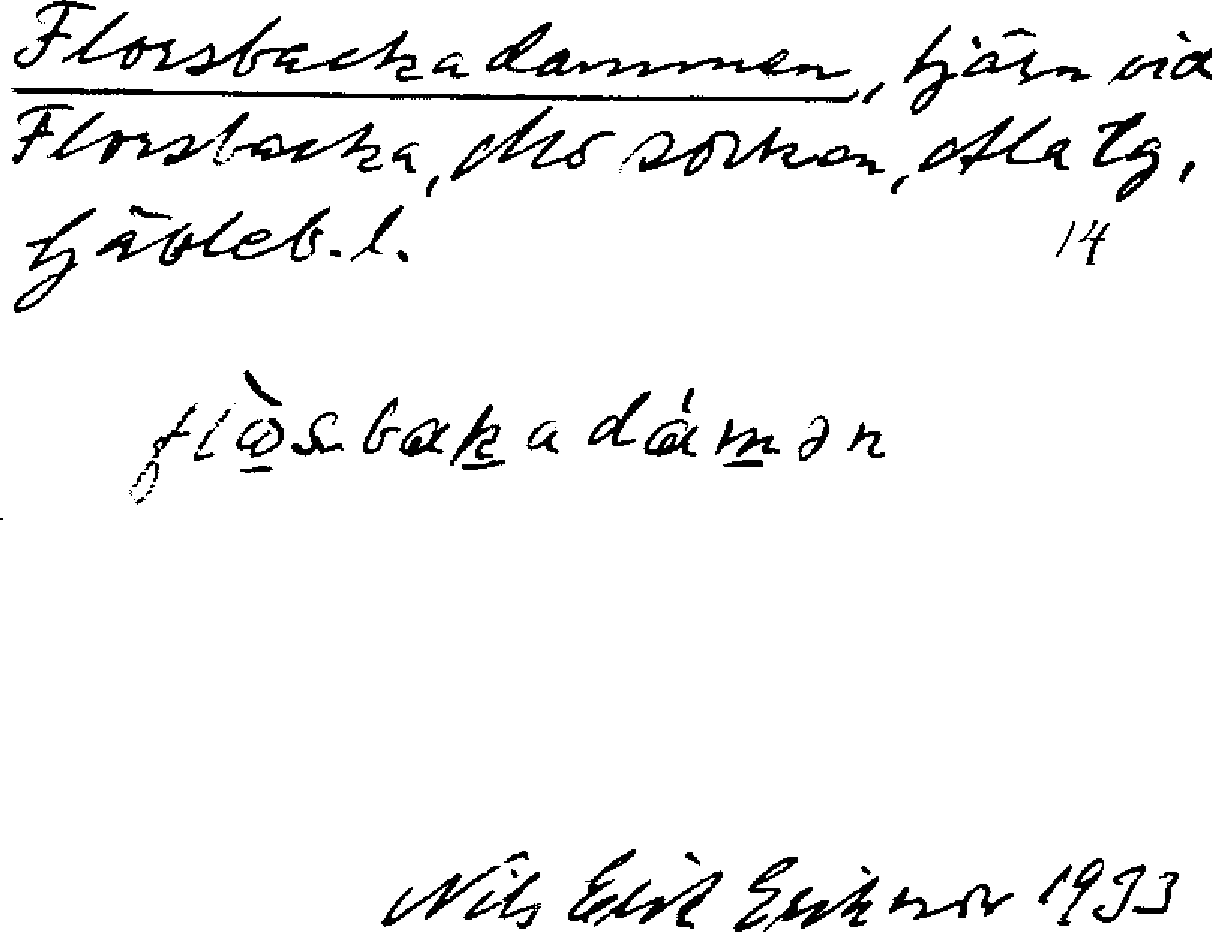 Florsbackadammen, tjärn vid
Florsbacka, Mo socken, Ala tg,
Gävleb. l. 14
Nils Erik Eriksson 1933